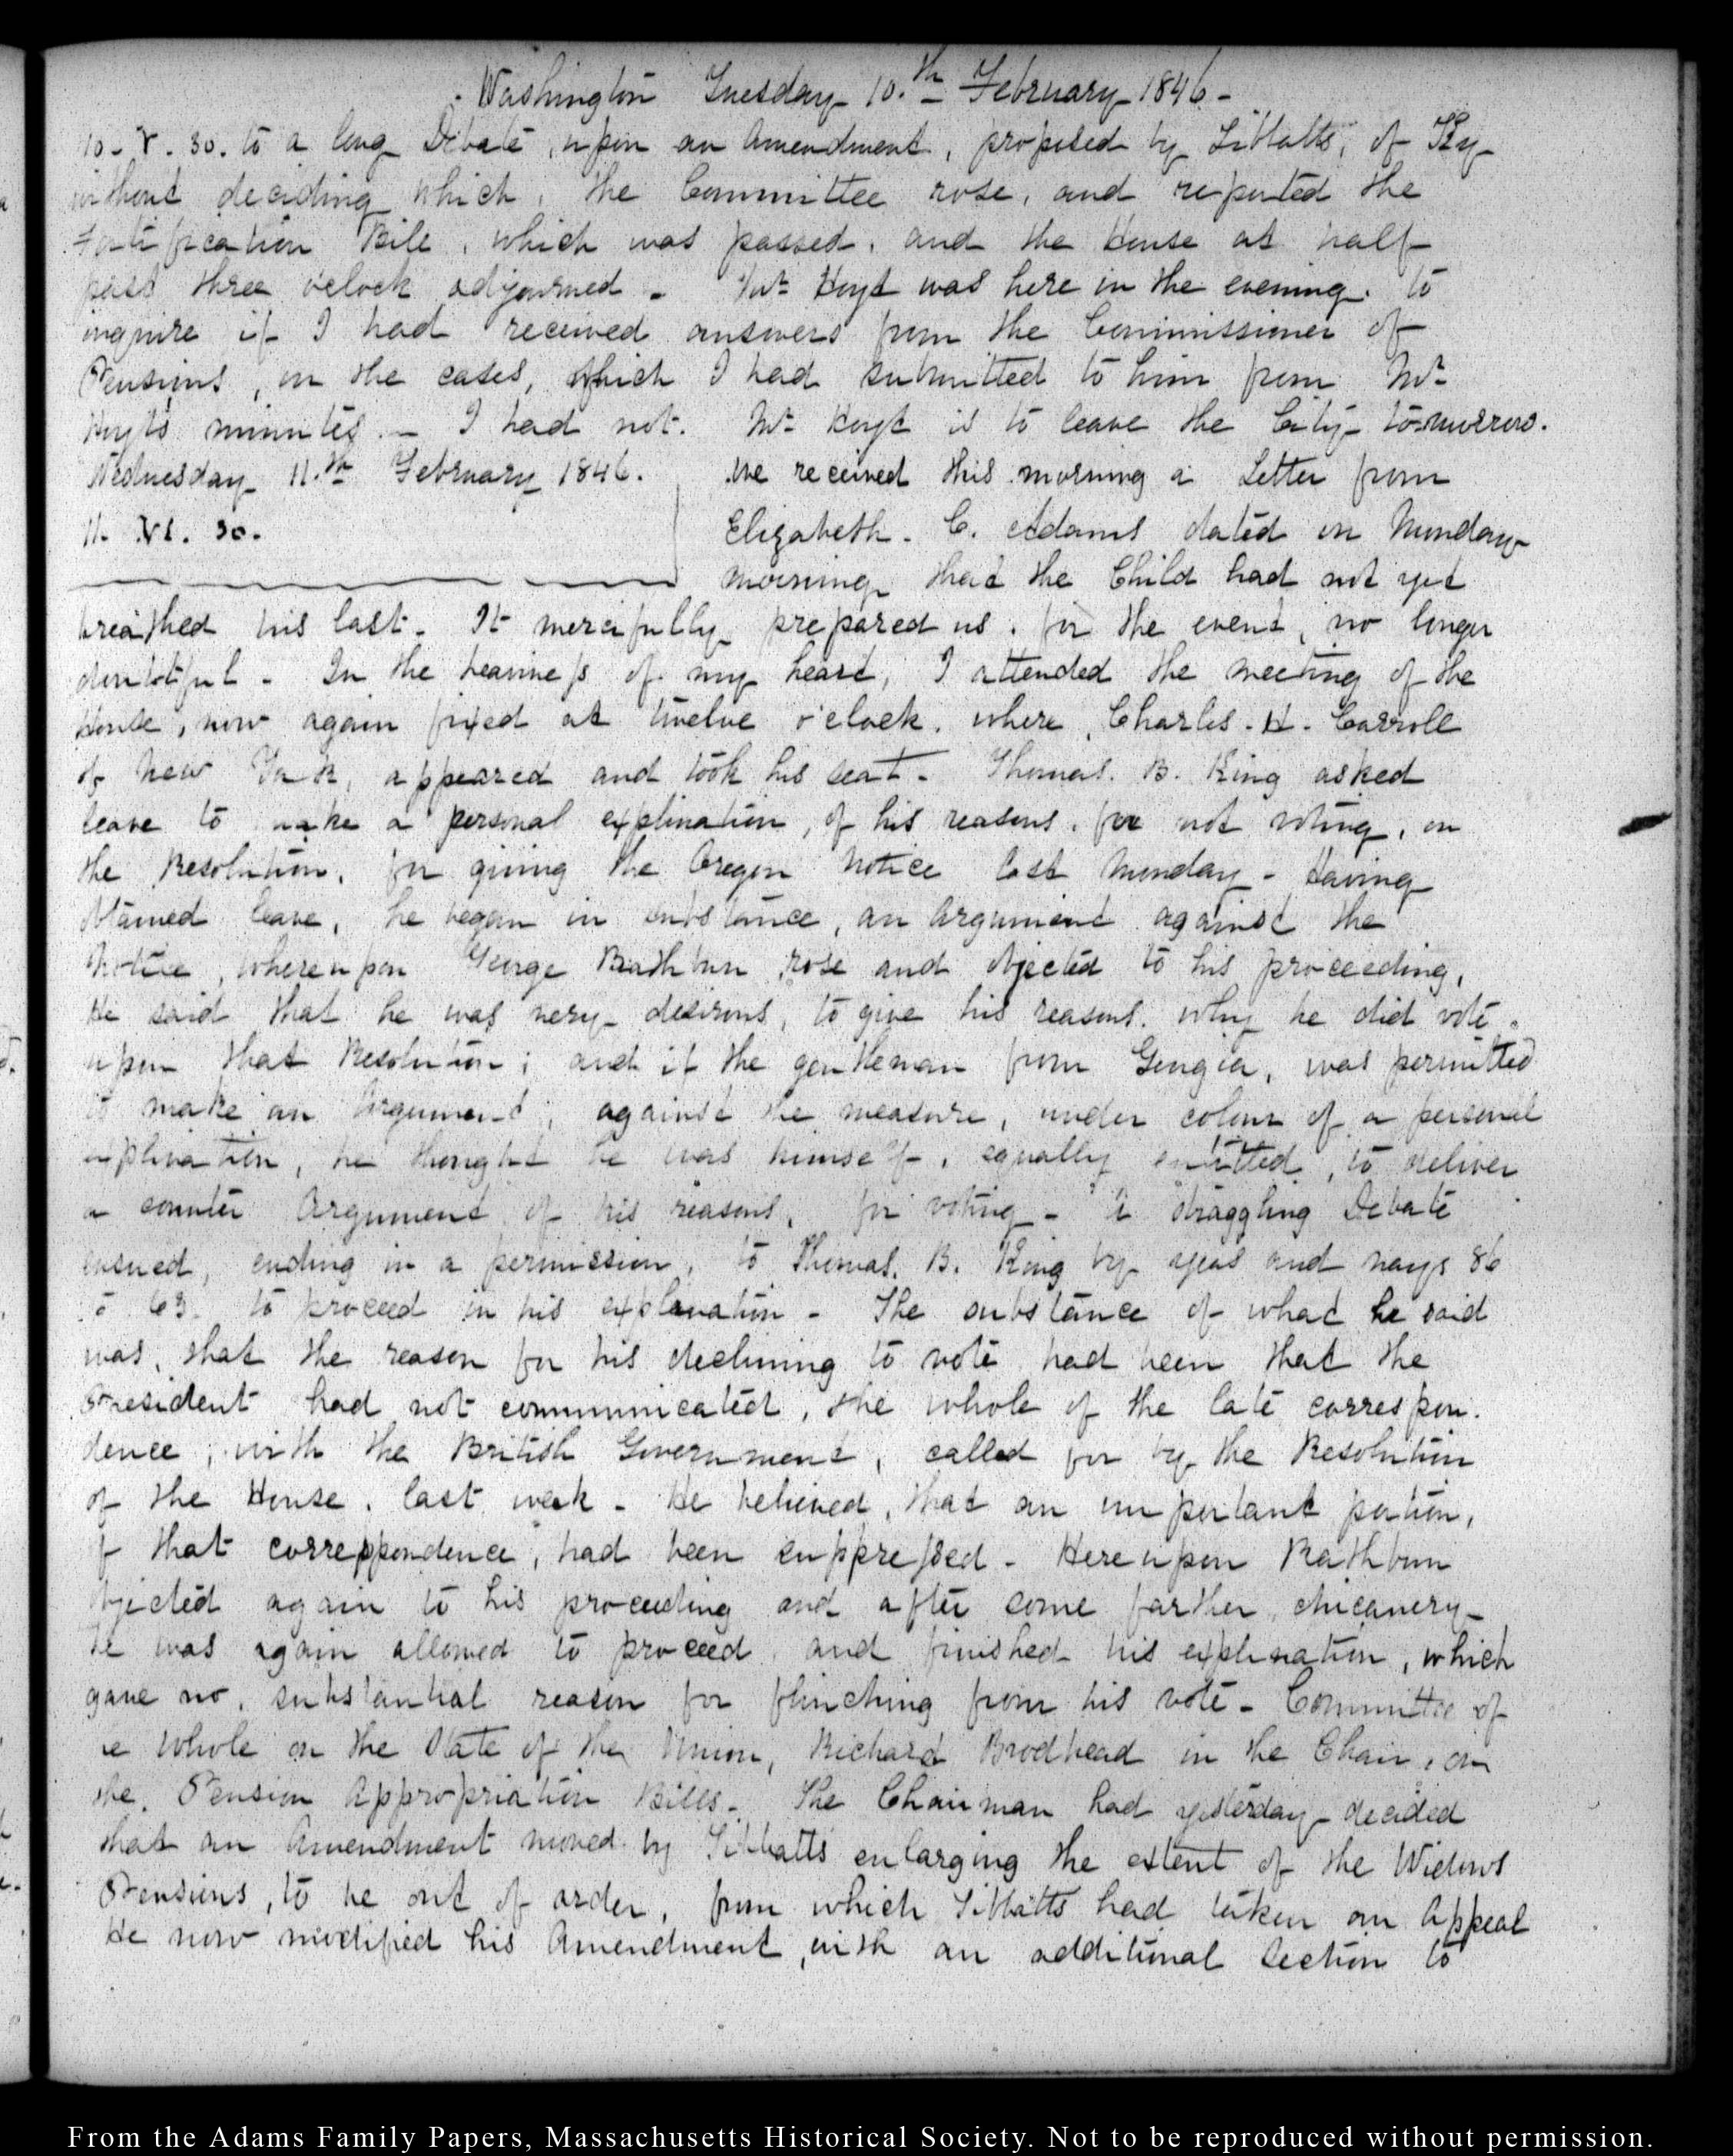 Washington Tuesday 10.th February 1846-
10. V. 30. to a long Debate, upon an Amendment, proposed by Tibbatts, of Ky
without deciding which, the Committee rose, and reported the
Fortification Bill, which was passed, and the House at half
past three o'clock adjourned - Mr. Hoyt was here in the evening, to
inquire if I had received answers from the Commissioner of
Pensions, in the cases, which I had submitted to him from Mr.
Hoyt's minutes. - I had not. Mr. Hoyt is to leave the City to-morrow.
Wednesday 11.th February 1846. We received this morning a Letter from
11. VI. 30. Elizabeth. C. Adams dated on Monday
morning that the Child had not yet
breathed his last. It mercifully prepared us, for the event, no longer
doubtful - In the heaviness of my heart, I attended the meeting of the
House, now again fixed at twelve o'clock, where, Charles. H. Carroll
of New York, appeared and took his seat - Thomas. B. King asked
leave to make a personal explanation, of his reasons, for not voting, on
the Resolution, for giving the Oregon Notice last Monday - Having
obtained leave, he began in substance, an Argument against the
Notice, whereupon George Rathbun rose and objected to his proceeding,
He said that he was very desirous, to give his reasons, why he did vote
upon that Resolution; and if the gentleman from Georgia, was permitted
to make an Argument, against the measure, under colour of a personal
explanation, he thought he was himself, equally entitled, to deliver
a counter Argument of his reasons, for voting - A straggling Debate
ensued, ending in a permission, to Thomas. B. King by yeas and nays 86
to 63. to proceed in his explanation - The substance of what he said
was, that the reason for his declining to vote had been that the
President had not communicated, the whole of the late correspon.
dence, with the British Government, called for by the Resolution
of the House, last week - He believed, that an important portion,
of that correspondence, had been suppressed - Hereupon Rathbun
objected again to his proceeding and after some farther, chicanery
he was again allowed to proceed, and finished his explanation, which
gave no, substantial reason for flinching from his vote - Committee of
the whole on the State of the Union, Richard Brodhead in the Chair, on
the, Pension Appropriation Bills - The Chairman had yesterday decided
that an Amendment moved by Tibbatts enlarging the extent of the Widows
Pensions, to be out of order, from which Tibbatts had taken an Appeal
He now modified his Amendment, with an additional Section to
From the Adams Family Papers, Massachusetts Historical Society. Not to be reproduced without permission.